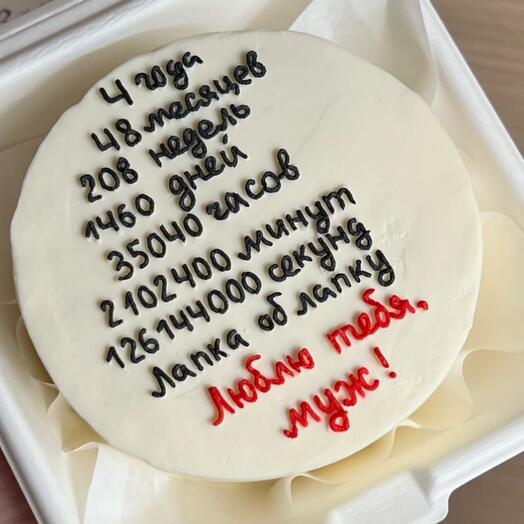 4 года
48 месяцев
208 недель
1460 дней
35040 часов
2102400 минут
126144000 секунд
Лапка об лапку
Люблю тебя,
муж!